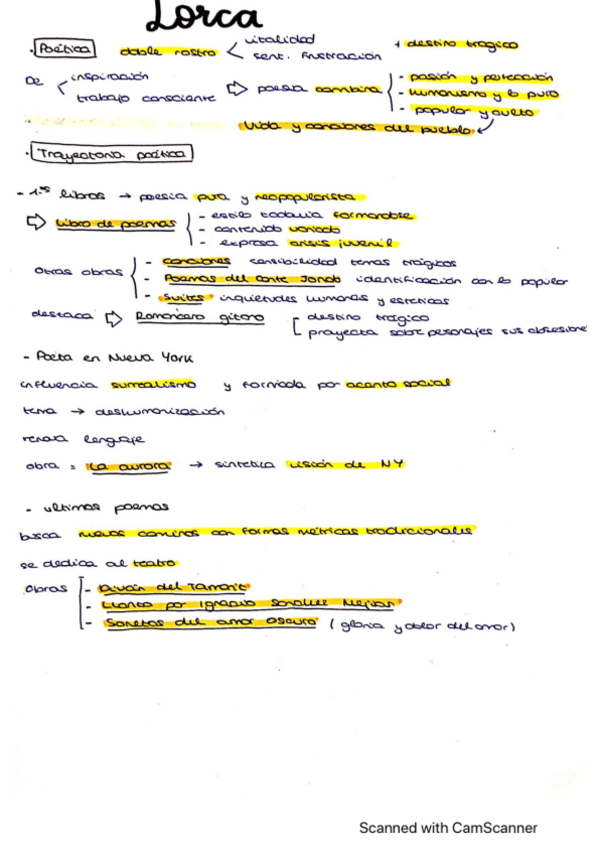 Lorca
· Poética doble rostro < vitalidad + destino trágico
sent. frustración
De < inspiración ⇨ poesía combina - pasión y perfección
trabajo consciente - humanismo y lo puro
- popular y culto
Vida y canciones del pueblo
· Trayectoria poética
- 1.ºs libros → poesía pura y neopopularista
⇨ Libro de poemas - estilo todavía formandose
- contenido variado
- expresa crisis juvenil
otras obras - canciones sensibilidad temas trágicos
- Poemas del cante Jondo identificación con lo popular
- Suites inquietudes humanas y esteticas
destaca ⇨ Romancero gitano destino trágico
proyecta sobre personajes sus obsesione
- Poeta en Nueva York
influencia surrealismo y by acento social
tema → deshumanización
renova lenguaje
obra = La aurora → sintetica visión de NY
- ultimos poemas
busca nuevos caminos con formas métricas tradicionales
se dedica al teatro
obras - Diván del Tamarit
- Llanto por Ignacio Sanchez Mejias
- Sonetos del amor oscuro (gloria y dolor del amor)
Scanned with CamScanner